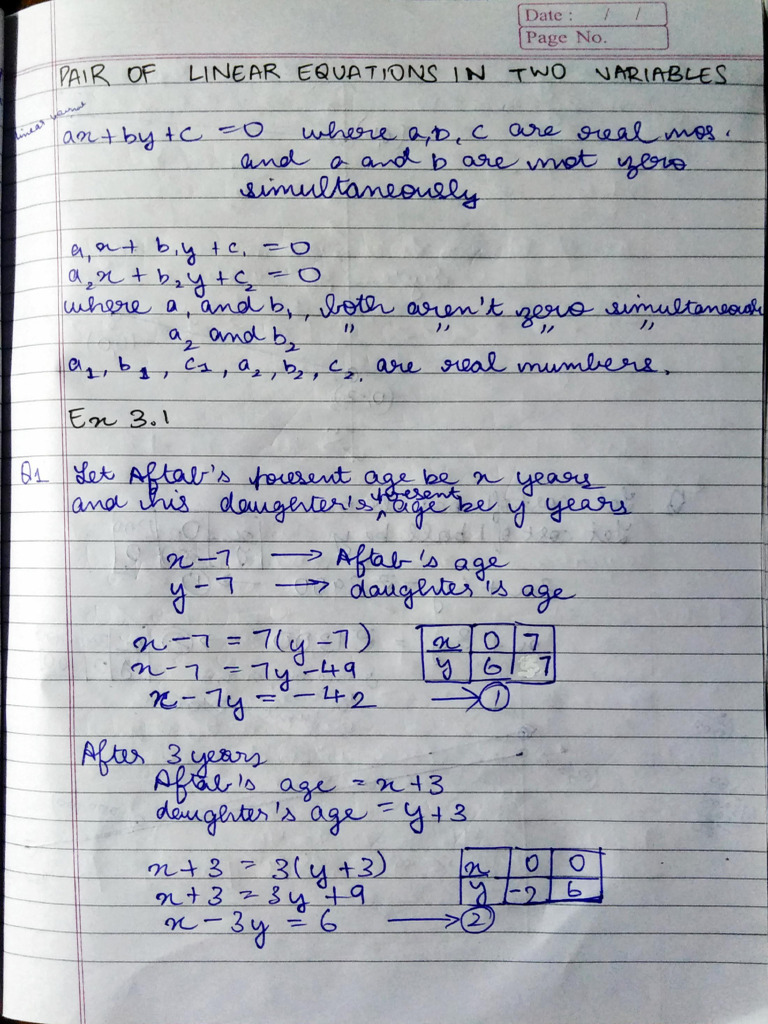 Date : / /
Page No.
PAIR OF LINEAR EQUATIONS IN TWO VARIABLES
linear
ax + by + c = 0 where a, b, c are real nos.
and a and b are not zero
simultaneously
a₁x + b₁y + c₁ = 0
a₂x + b₂y + c₂ = 0
where a₁ and b₁, both aren't zero simultaneously
a₂ and b₂ " " " "
a₁, b₁, c₁, a₂, b₂, c₂, are real numbers.
Ex 3.1
Q1 Let Aftab's present age be x years
and his daughter's present age be y years
x - 7 → Aftab's age
y - 7 → daughter's age
x - 7 = 7(y - 7)
x - 7 = 7y - 49
x - 7y = -42 → ①
x 0 7
y 6 7
After 3 years
Aftab's age = x + 3
daughter's age = y + 3
x + 3 = 3(y + 3)
x + 3 = 3y + 9
x - 3y = 6 → ②
x 0 0
y -2 6